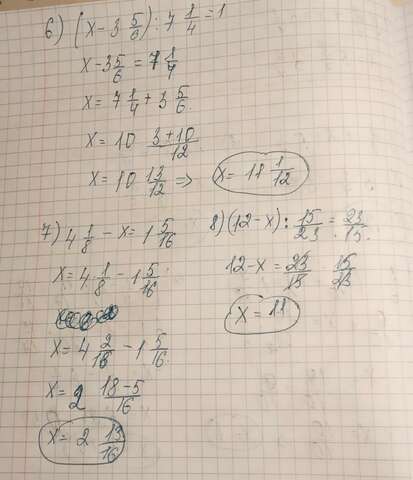 6) (x - 3 5/6) : 7 1/4 = 1
x - 3 5/6 = 7 1/4
x = 7 1/4 + 3 5/6
x = 10 3+10/12
x = 10 13/12 => x = 11 1/12
7) 4 1/8 - x = 1 5/16
x = 4 1/8 - 1 5/16
x = 4 2/16 - 1 5/16
x = 2 18-5/16
x = 2 13/16
8) (12 - x) : 15/23 = 23/15
12 - x = 23/15 15/23
x = 11